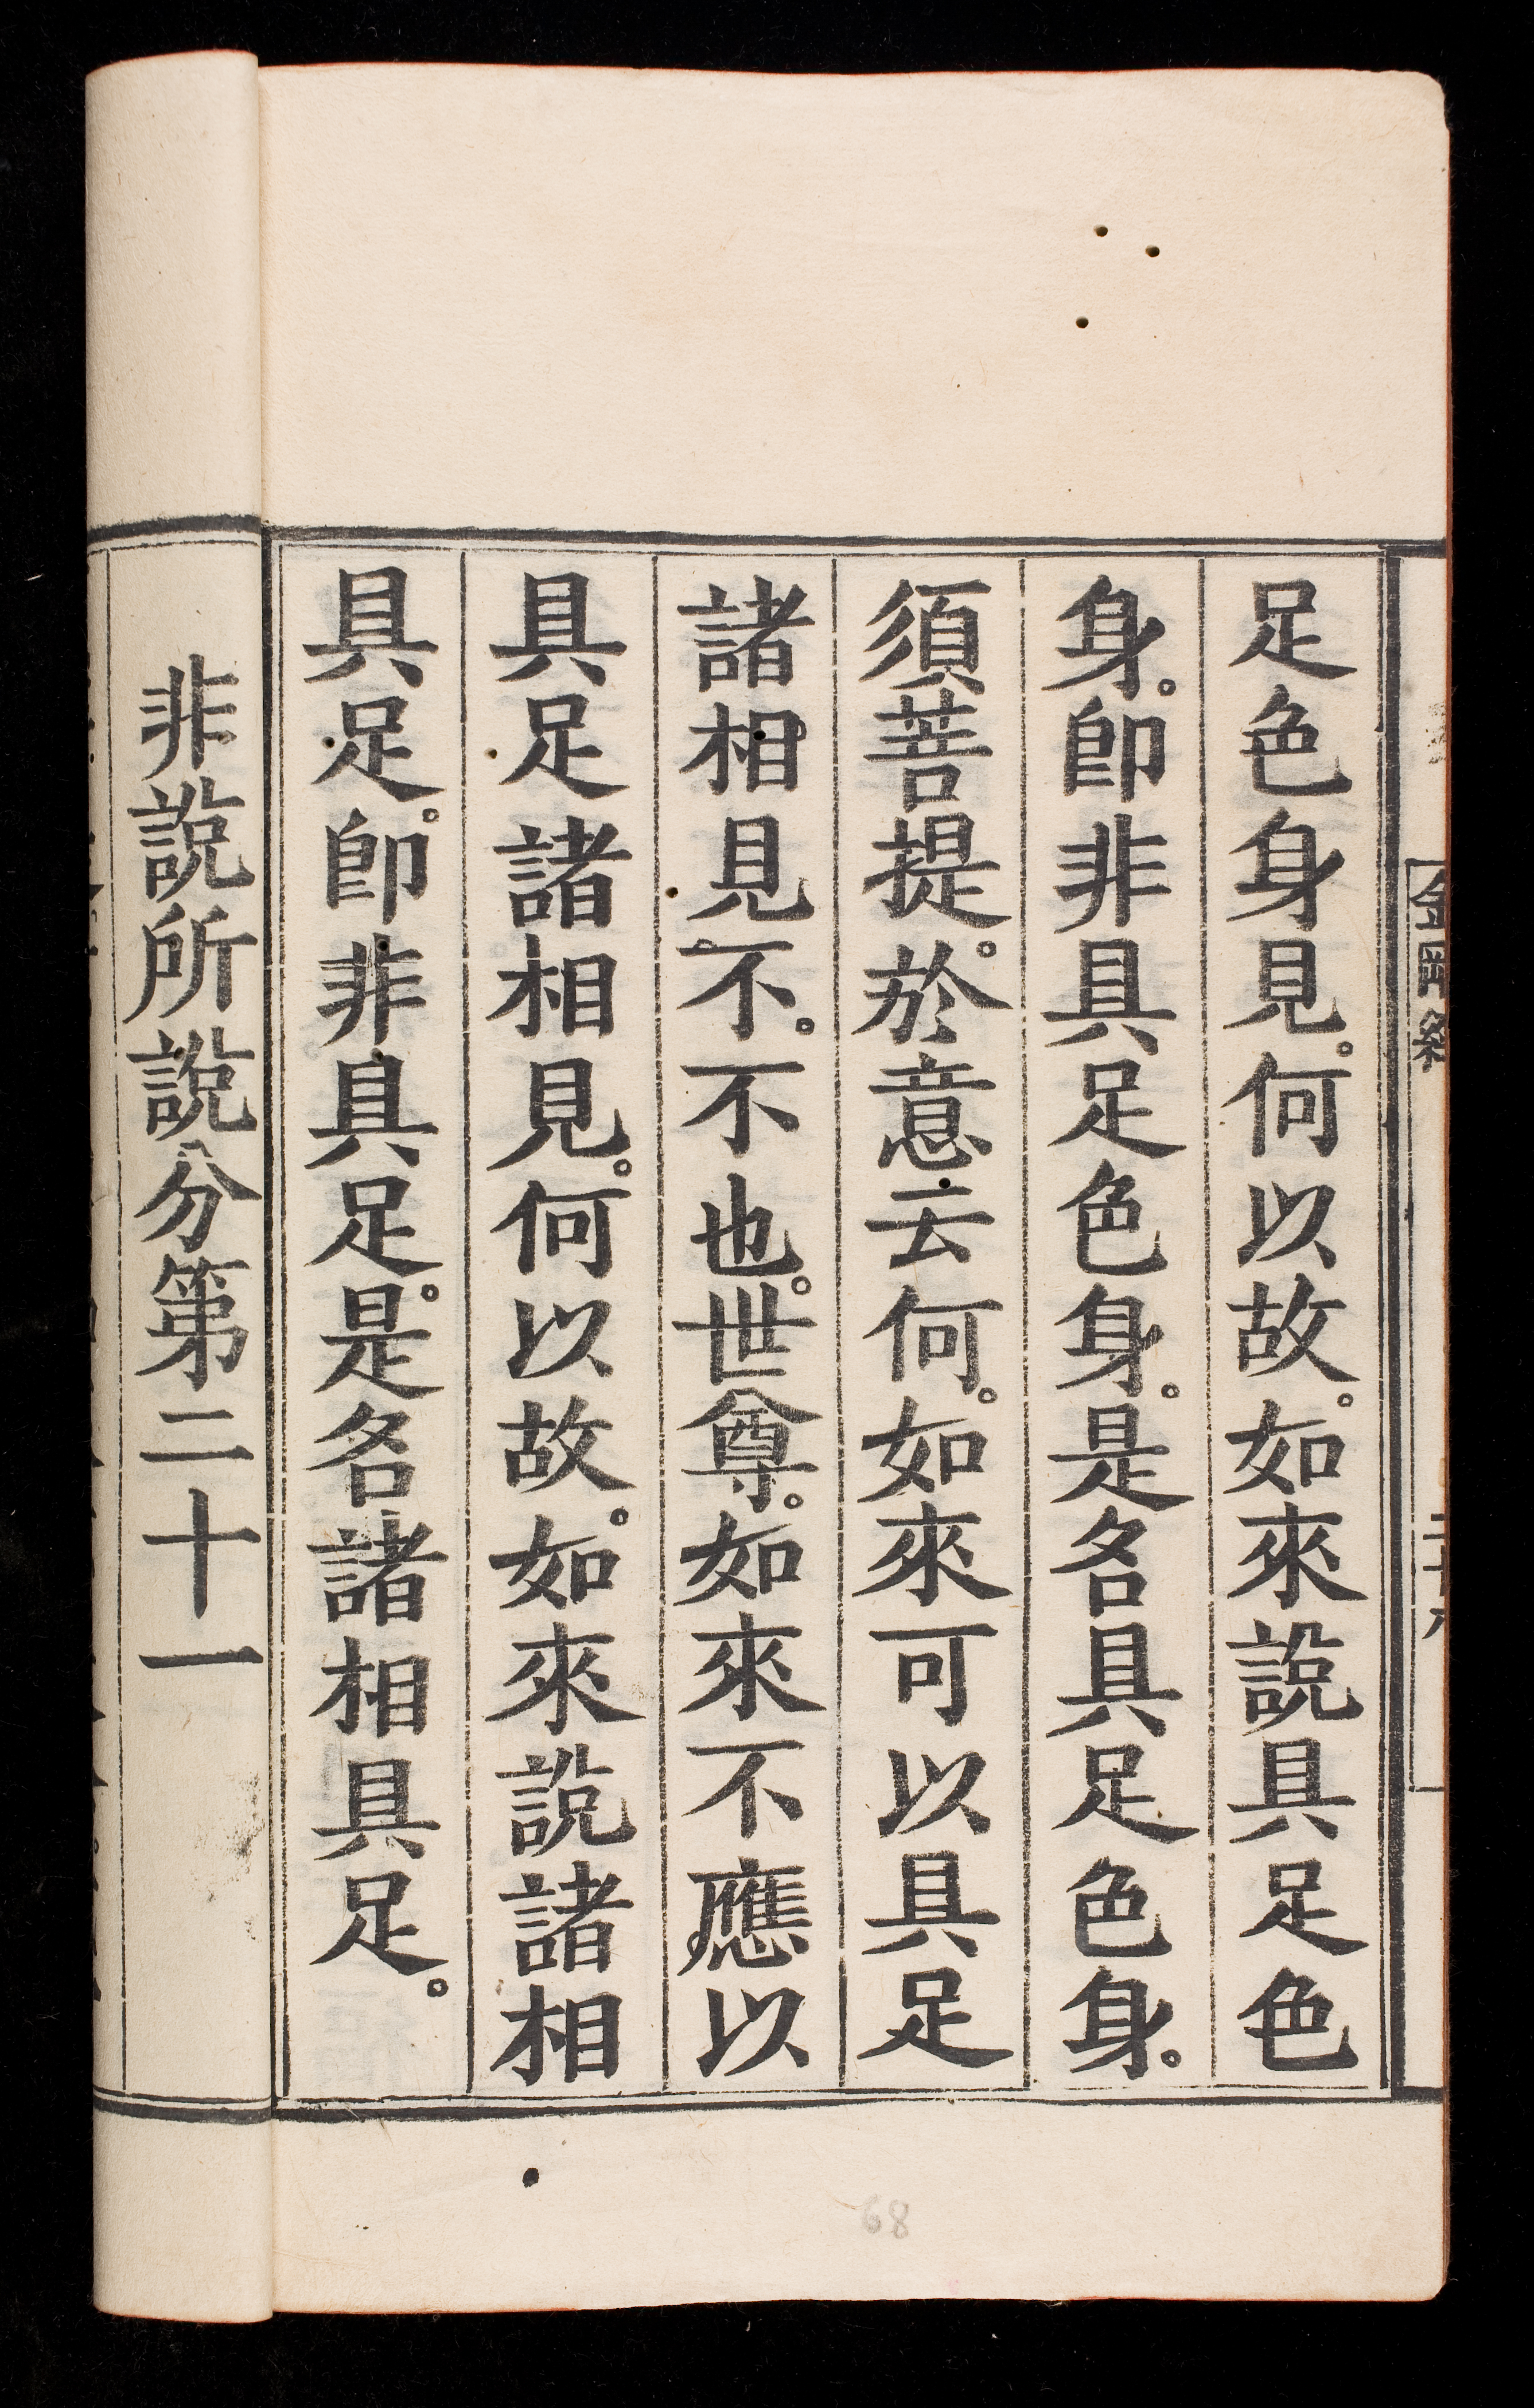 足色身見。何以故。如來說具足色
身。卽非具足色身。是名具足色身。
須菩提。於意云何。如來可以具足
諸相見。不。不也。世尊。如來不應以
具足諸相見。何以故。如來說諸相
具足。卽非具足。是名諸相具足。
非說所說分第二十一
68